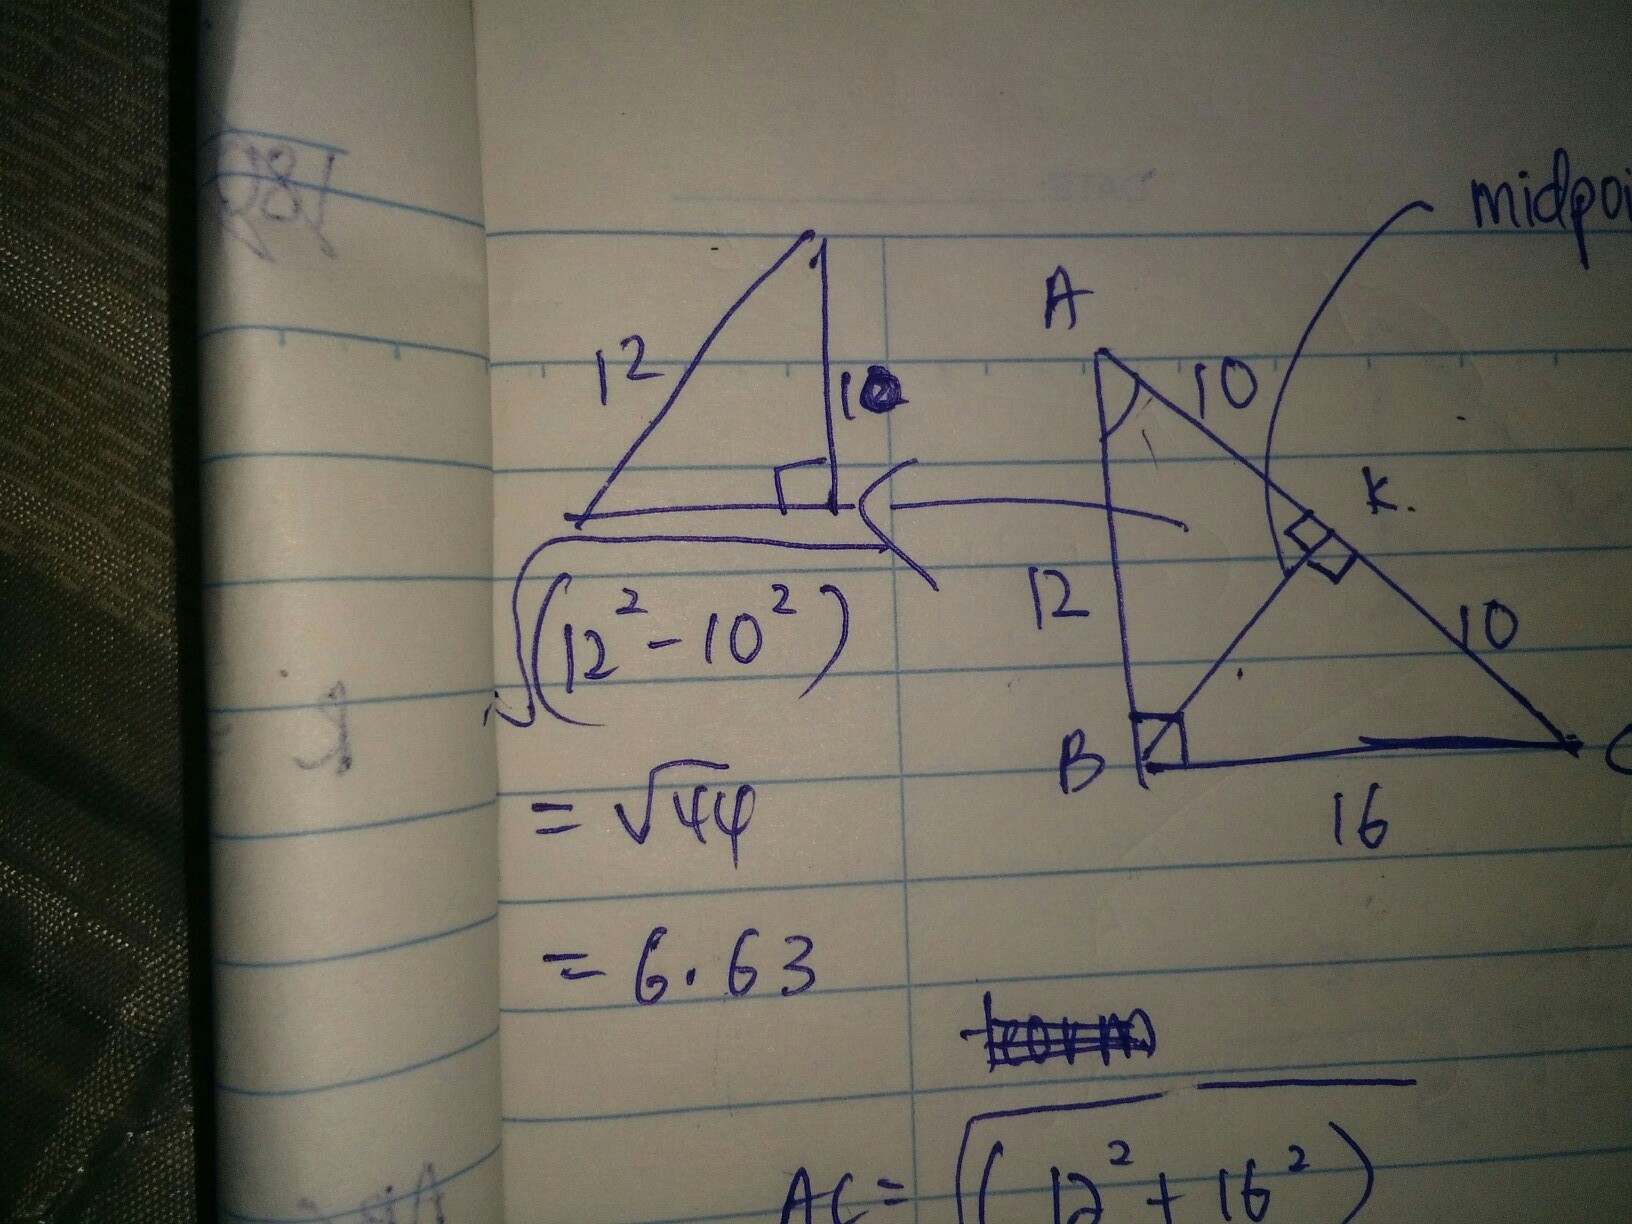 midpoi
A
12
10
10
K.
12
10
√(12² - 10²)
B
16
= √44
= 6.63
AC = √(12² + 16²)